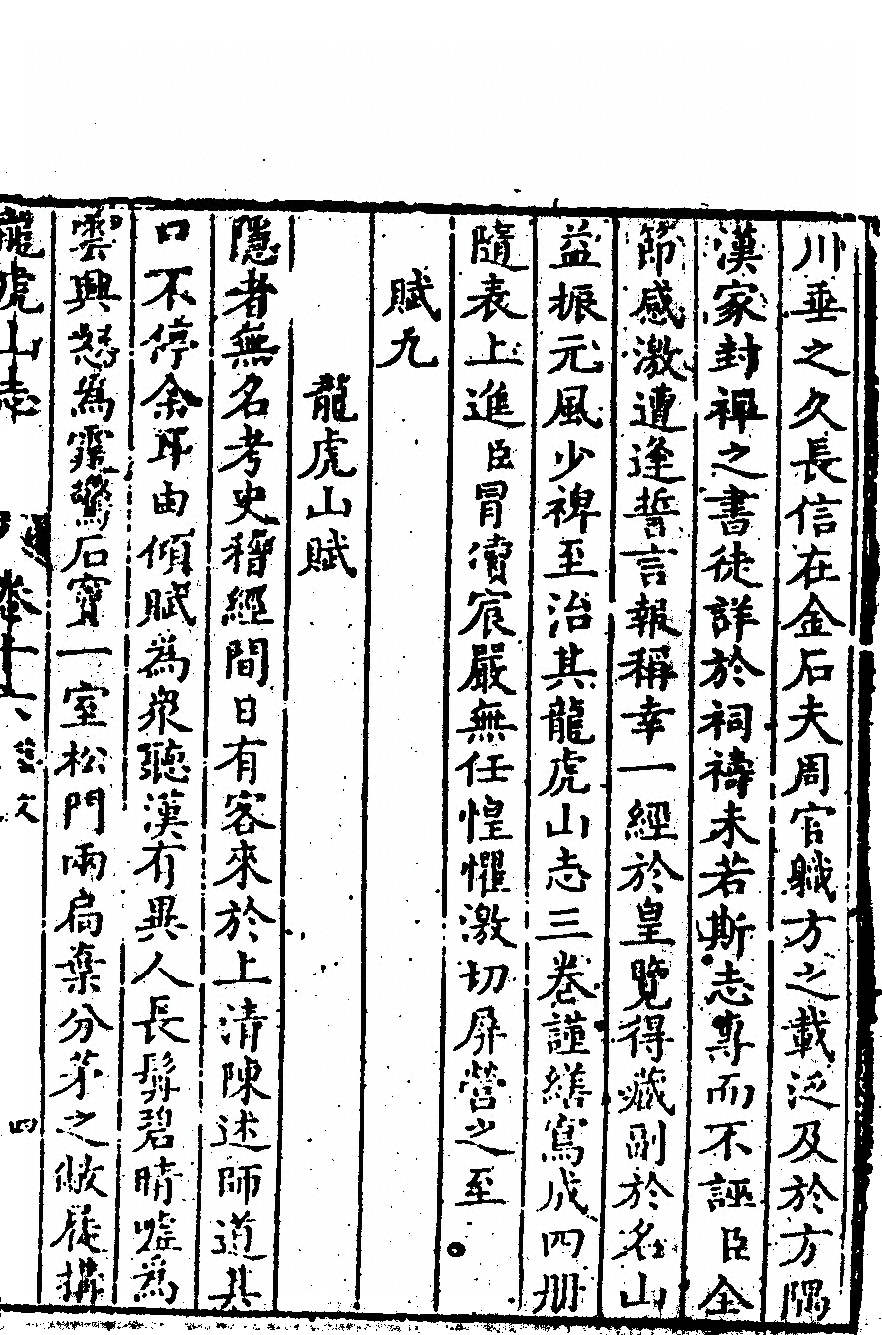 川垂之久長信在金石夫周官職方之載泛及於方隅
漢家封禪之書徒詳於祠禱未若斯志專而不誣臣全
節感激遭逢誓言報稱幸一經於皇覽得藏副於名山
益振元風少裨至治其龍虎山志三卷謹繕寫成四册
隨表上進臣冒瀆宸嚴無任惶懼激切屏營之至
賦九
龍虎山賦
隱者無名考史稽經間日有客來於上清陳述師道其
口不停余耳由傾賦為衆聽漢有異人長髯碧睛噓為
雲興怒為霆驚石寶一室松門兩扃葉分茅之敝屣搆
龍虎山志 卷十六 藝文 四